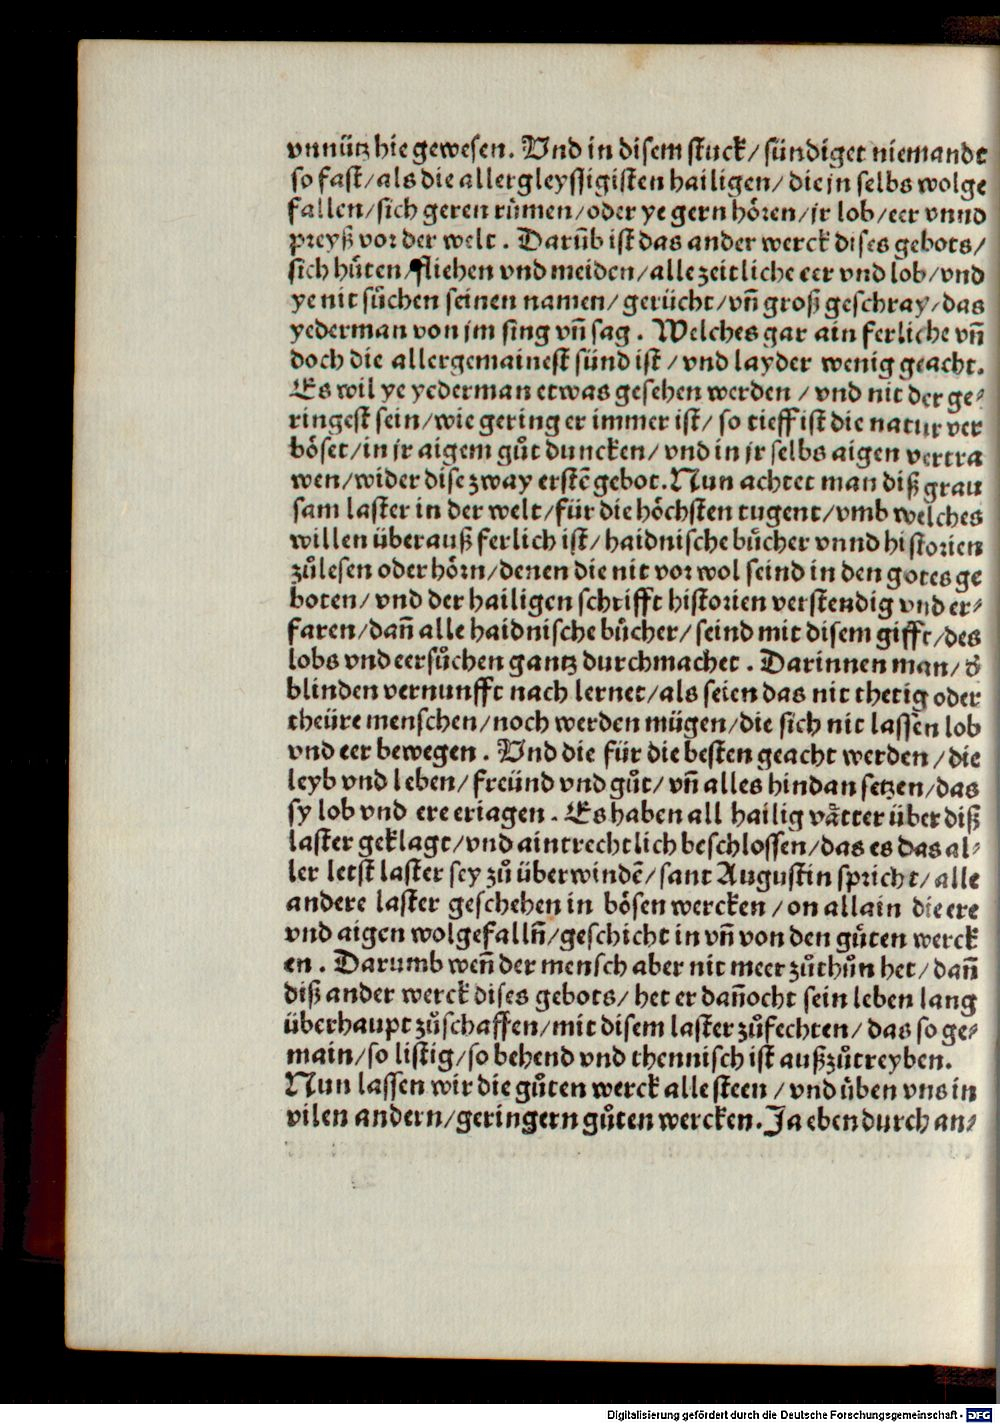 vnnütz hie gewesen. Vnd in disem stuck/ sündiget niemandt
so fast/als die allergleyssigisten hailigen/ die jn selbs wolge
fallen/sich geren rümen/oder ye gern hören/jr lob/eer vnnd
preyß vor der welt. Darüb ist das ander werck dises gebots/
sich hüten/fliehen vnd meiden/alle zeitliche eer vnd lob/vnd
ye nit sůchen seinen namen/ gerücht/vn̄ groß geschray/das
yederman von jm sing vn̄ sag. Welches gar ain ferliche vn̄
doch die allergemainest sünd ist/ vnd layder wenig geacht.
Es wil ye yederman etwas gesehen werden / vnd nit der ge⸗
ringest sein/wie gering er immer ist/ so tieff ist die natur ver
böset/in jr aigem gůt duncken/ vnd in jr selbs aigen vertra
wen/wider dise zway erstē gebot. Nun achtet man diß grau
sam laster in der welt/für die höchsten tugent/vmb welches
willen überauß ferlich ist/ haidnische bücher vnnd historien
zůlesen oder hörn/denen die nit vor wol seind in den gotes ge
boten/ vnd der hailigen schrifft historien verstendig vnd er⸗
faren/dan̄ alle haidnische bücher/ seind mit disem gifft/des
lobs vnd eersůchen gantz durchmachet. Darinnen man/ d̕
blinden vernunfft nach lernet/als seien das nit thetig oder
theüre menschen/noch werden mügen/die sich nit lassen lob
vnd eer bewegen. Vnd die für die besten geacht werden/die
leyb vnd leben/ freünd vnd gůt/ vn̄ alles hindan setzen/das
sy lob vnd ere eriagen. Es haben all hailig vätter über diß
laster geklagt/vnd aintrechtlich beschlossen/das es das al⸗
ler letst laster sey zů überwindē/ sant Augustin spricht/ alle
andere laster geschehen in bösen wercken / on allain die ere
vnd aigen wolgefalln̄/geschicht in vn̄ von den gůten werck
en. Darumb wen̄ der mensch aber nit meer zůthůn het/ dan̄
diß ander werck dises gebots/ het er dan̄ocht sein leben lang
überhaupt zůschaffen/mit disem laster zůfechten/ das so ge⸗
main/so listig/so behend vnd thennisch ist außzůtreyben.
Nun lassen wir die gůten werck alle steen / vnd üben vns in
vilen andern/geringern gůten wercken. Ja eben durch an⸗
Digitalisierung gefördert durch die Deutsche Forschungsgemeinschaft - DFG